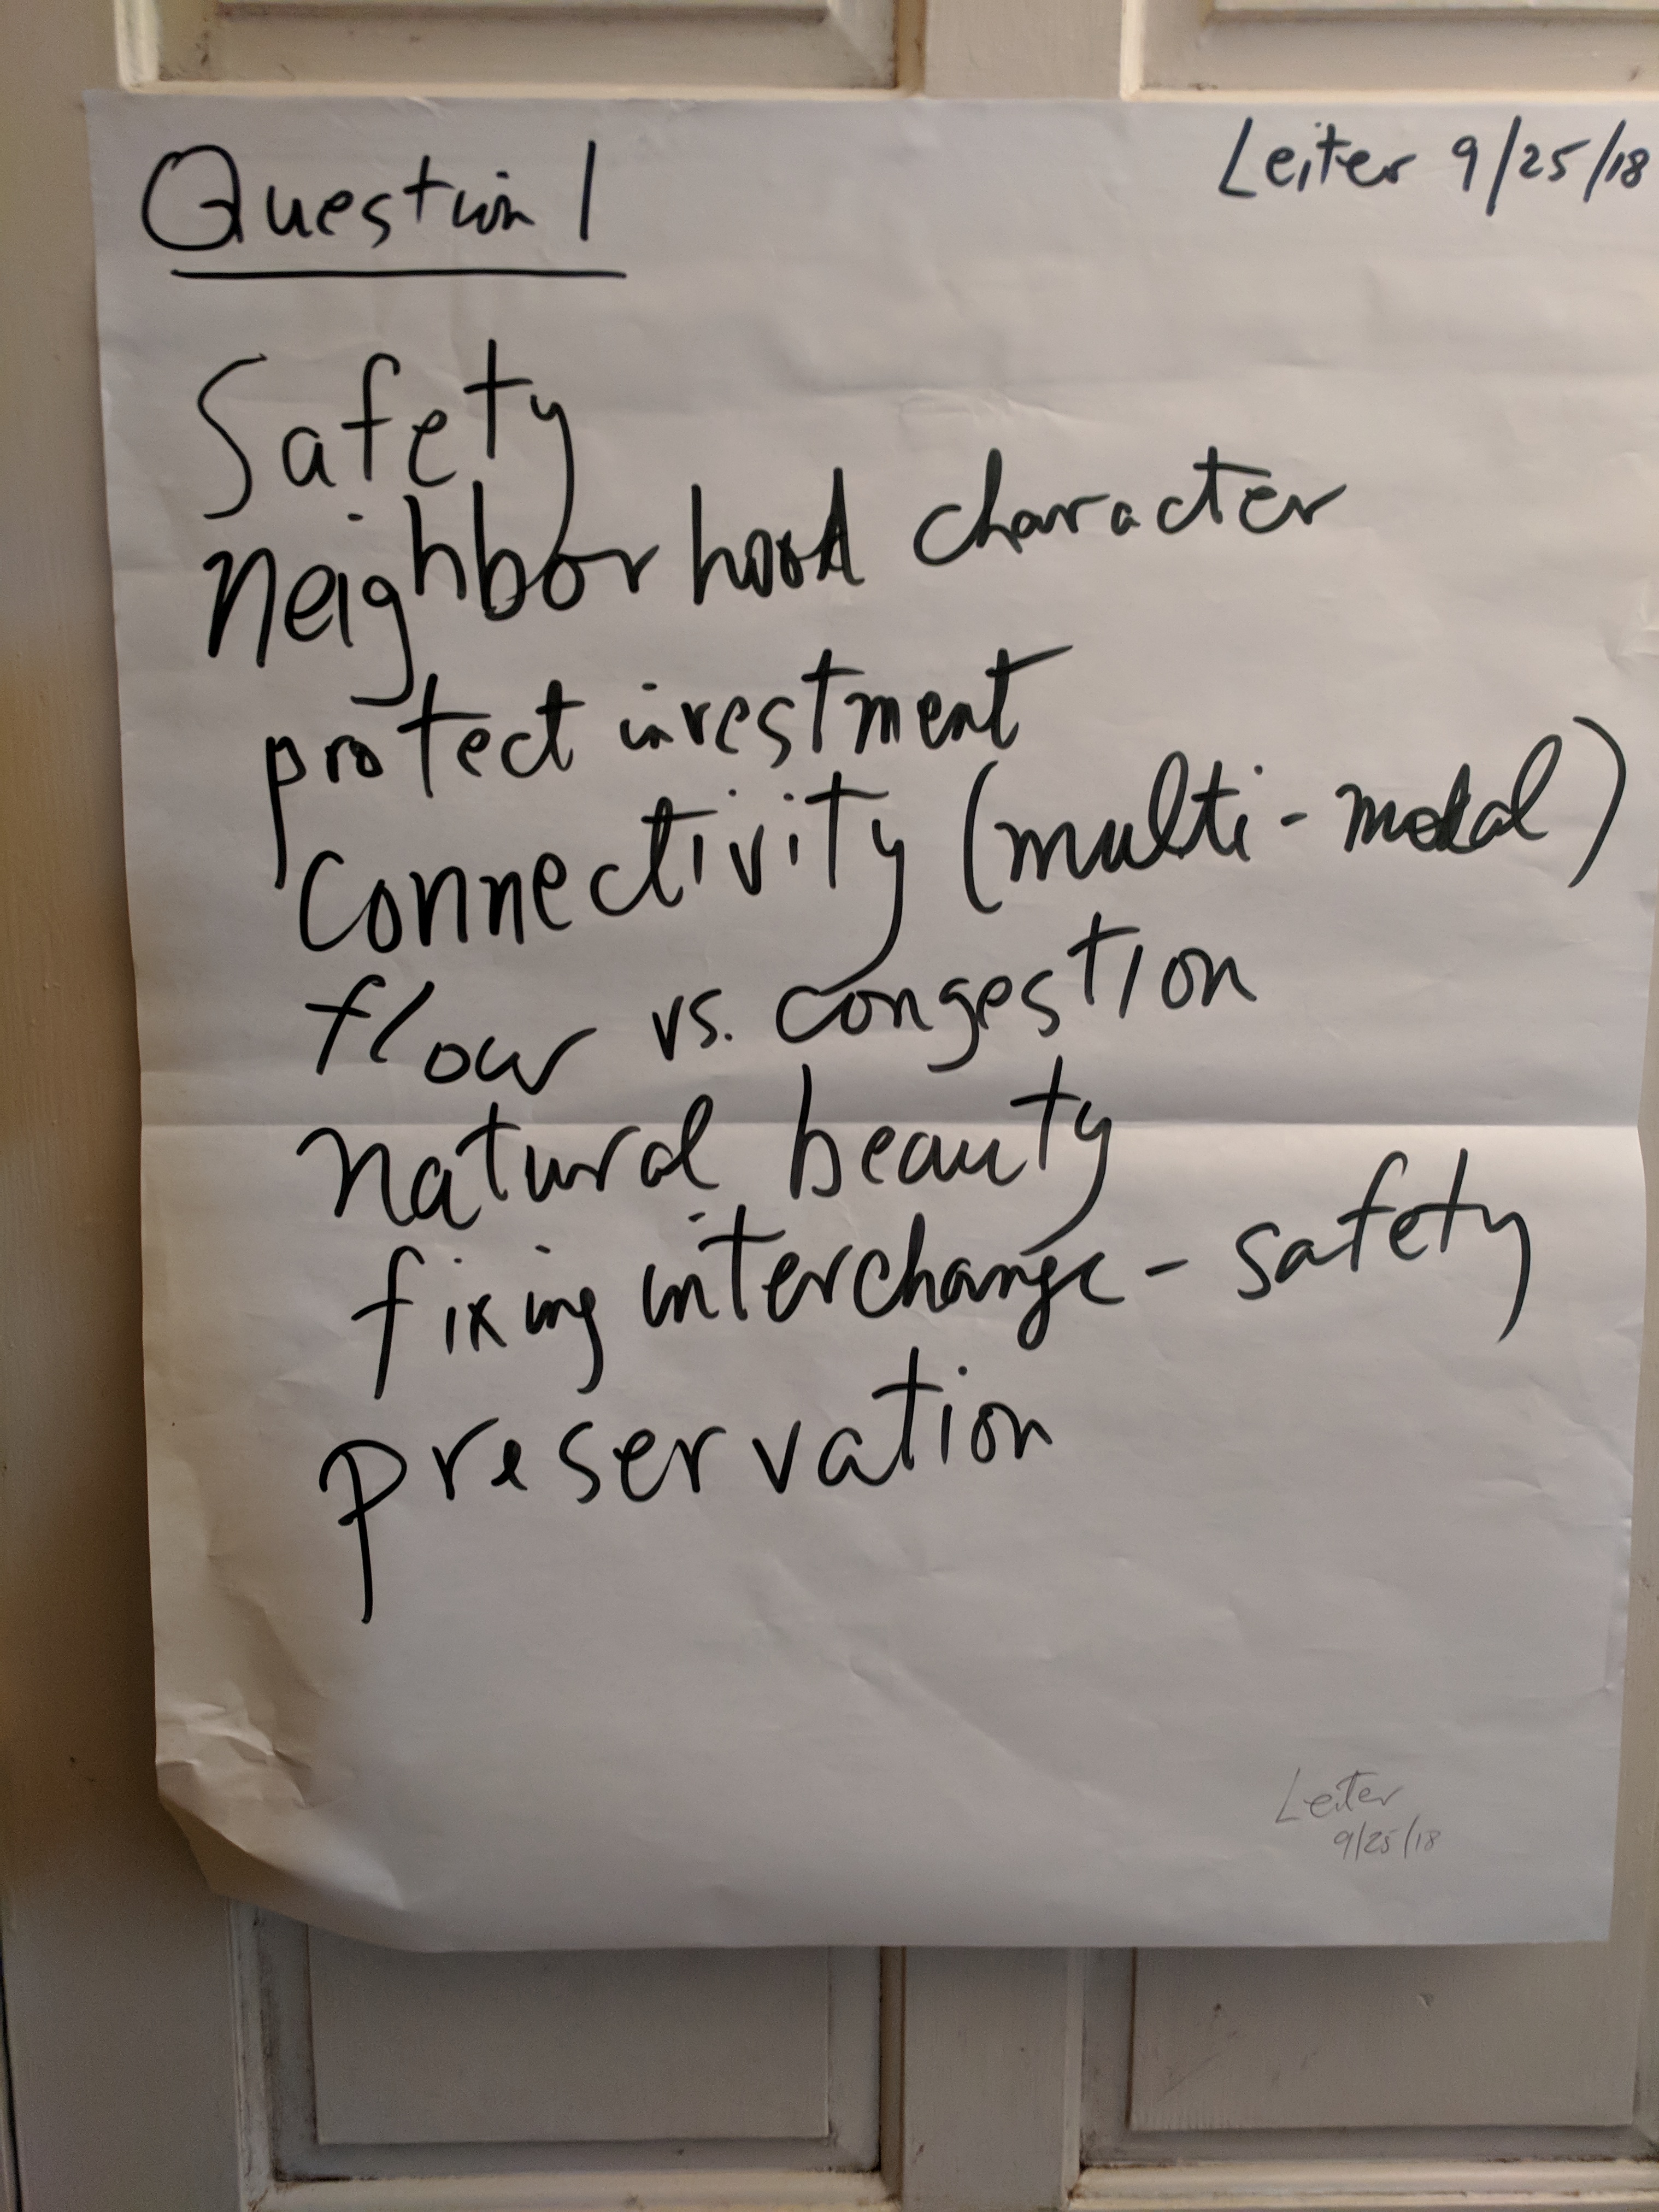 Question 1
Leiter 9/25/18
Safety
neighborhood character
protect investment
connectivity (multi-modal)
flow vs. congestion
natural beauty
fixing interchange - safety
preservation
Leiter
9/25/18